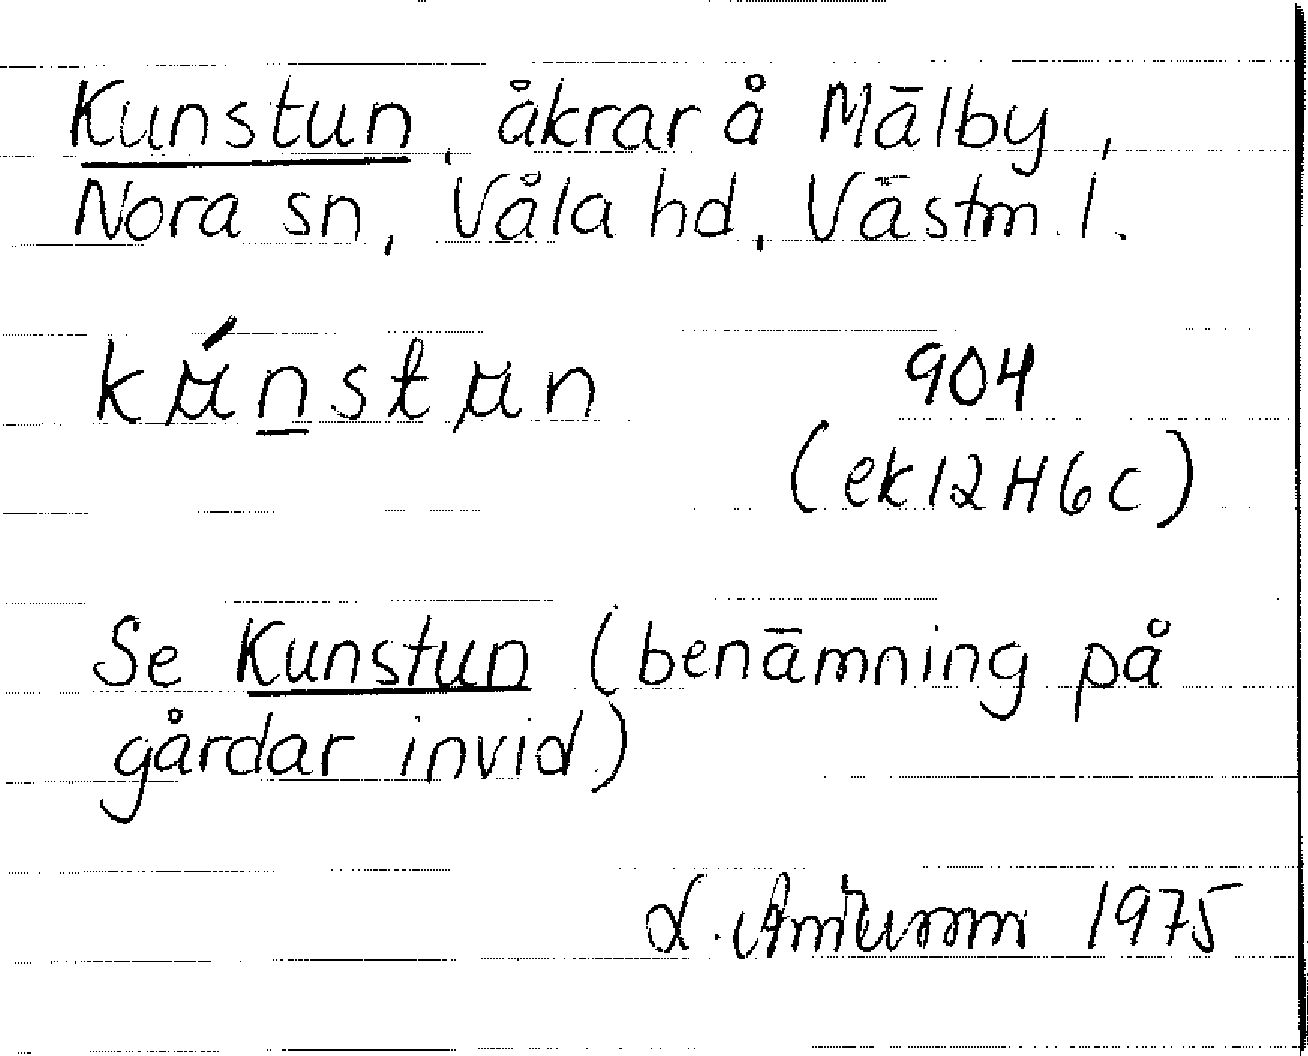 Kunstun, åkrar å Mälby,
Nora sn, Våla hd, Västml.
kúnstun 904
(ek 12H6c)
Se Kunstun (benämning på
gårdar invid)
L. 1975